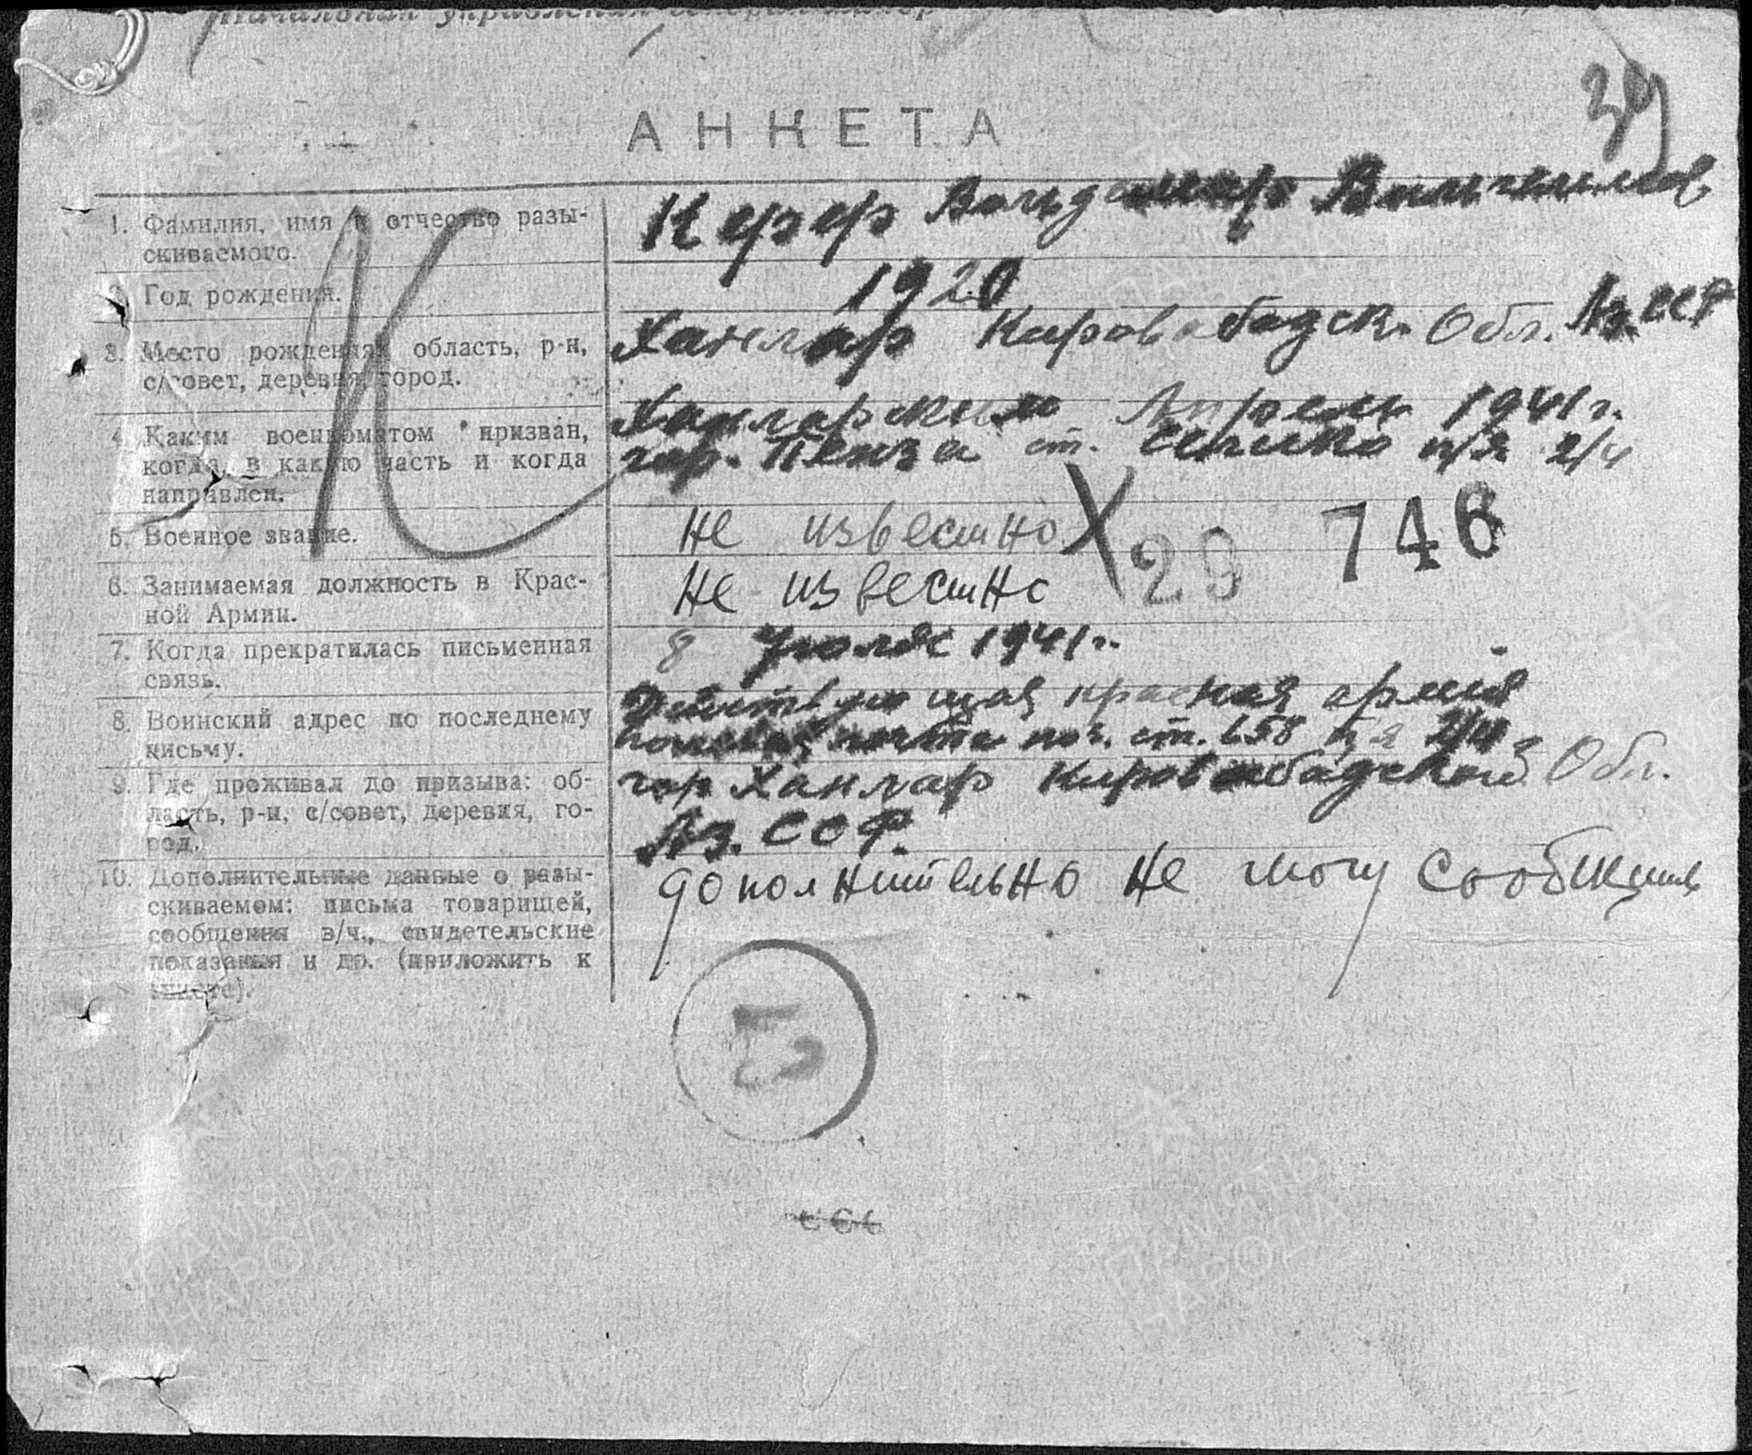 39
АНКЕТА
1. Фамилия, имя и отчество разы-
скиваемого.
Керер Вольдемар Вильгельмов
2. Год рождения.
1920
3. Место рождения: область, р-н,
с/совет, деревня, город.
Ханлар Кировабадск. Обл. Аз. ССР
4. Каким военкоматом призван,
когда, в какую часть и когда
направлен.
Ханларским Апрель 1941 г.
гор. Пенза ст. Селикса п/я
5. Военное звание.
не известно
29 746
6. Занимаемая должность в Крас-
ной Армии.
не известно
7. Когда прекратилась письменная
связь.
8 Июля 1941 г.
8. Воинский адрес по последнему
письму.
Действующая красная армия
полевая почта поч. ст. 658 п/я
9. Где проживал до призыва: об-
ласть, р-н, с/совет, деревня, го-
род.
гор Ханлар Кировабадской Обл.
Аз. ССР.
10. Дополнительные данные о разы-
скиваемом: письма товарищей,
сообщения в/ч., свидетельские
показания и др. (приложить к
анкете).
дополнительно не могу сообщить
К
ПАМЯТЬ
НАРОДА
ПАМЯТЬ
НАРОДА